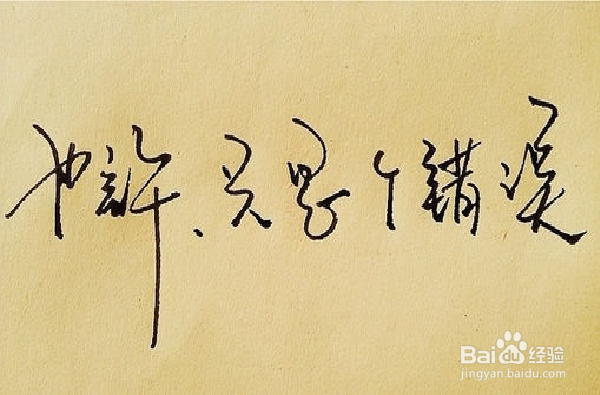 也許、只是个错误
Baidu经验
jingyan.baidu.com